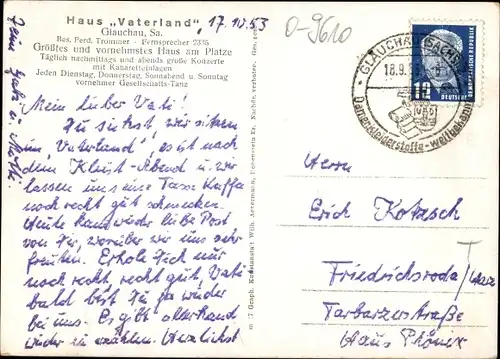 Haus „Vaterland“, 17.10.53
Glauchau, Sa.
Bes. Ferd. Trommer - Fernsprecher 2335
Größtes und vornehmstes Haus am Platze
Täglich nachmittags und abends große Konzerte
mit Kabaretteinlagen
Jeden Dienstag, Donnerstag, Sonnabend u. Sonntag
vornehmer Gesellschafts-Tanz
O-9610
GLAUCHAU (SACHS)
18.9.53
Damenkleiderstoffe - weltbekannt
12
DEUTSCHE
Mein lieber Vati!
Du siehst, wir sitzen
im „Vaterland“, es ist nach
dem Kleist-Abend u. wir
lassen uns eine Tasse Kaffee
noch recht gut schmecken.
Heute kam wieder liebe Post
von Dir, worüber wir uns sehr
freuten. Erhole Dich nur
noch recht, recht gut, Vati
bald bist Du ja wieder
bei uns. Es gibt allerhand
wieder zu erzählen. Herzlichst
Herrn
Erich Kotzsch
Friedrichsroda/
Tabarzerstraße
Haus Phönix